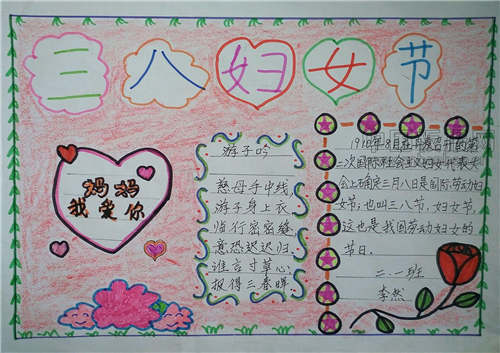 三八妇女节
妈妈
我爱你
游子吟
慈母手中线
游子身上衣
临行密密缝
意恐迟迟归.
谁言寸草心
报得三春晖.
1910年8月在丹麦召开的第
二次国际社会主义妇女代表大
会上确定三月八日是国际劳动妇
女节,也叫三八节,妇女节
这也是我国劳动妇女的
节日.
二.一班
李然